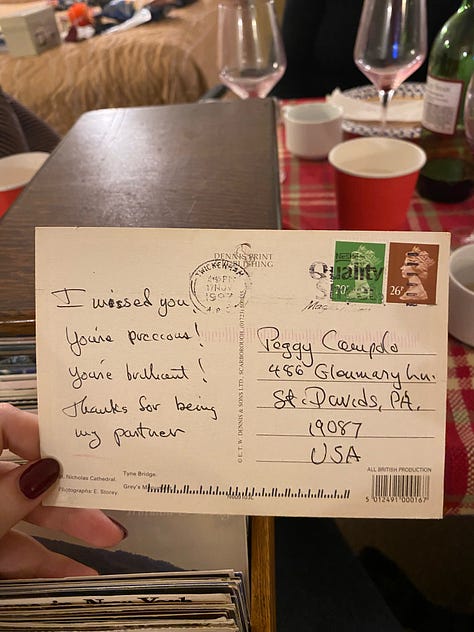 DENNIS PRINT
PUBLISHING
TWICKENHAM
17 NOV
Quality
20P
26P
I missed you
You're precious!
You're brilliant!
Thanks for being
my partner
E.T.W. DENNIS & SONS LTD., SCARBOROUGH
Peggy
486 Glenmary Ln.
St. Davids, PA.
19087
USA
Nicholas Cathedral.
Tyne Bridge.
Grey's
Photographs: E. Storey.
ALL BRITISH PRODUCTION
5 012491 000167
New York